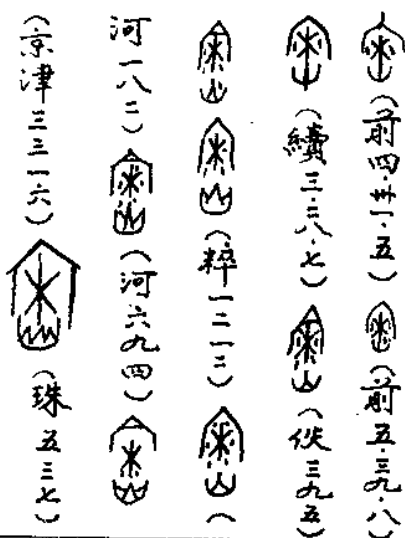 （前四·卅一·五）（前五·三九·八）
（續三·二八·七）（佚三九五）
（粹一二一二）（
河一八二）（河六九四）
（京津三三一六）（珠五三七）